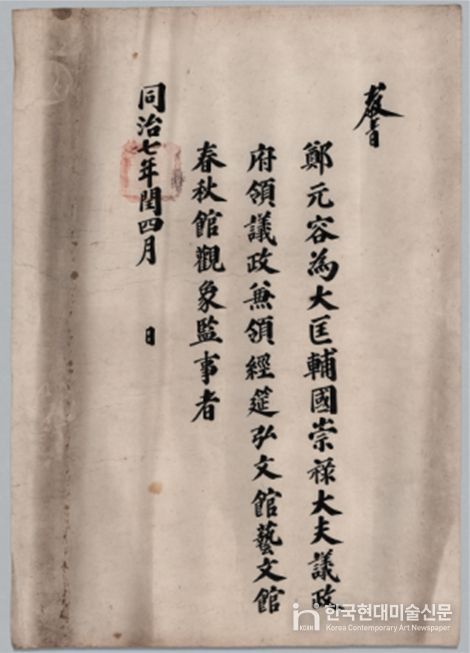 敎旨
鄭元容為大匡輔國崇祿大夫議政
府領議政兼領經筵弘文館藝文館
春秋館觀象監事者
同治七年閏四月 日
한국현대미술신문
Korea Contemporary Art Newspaper